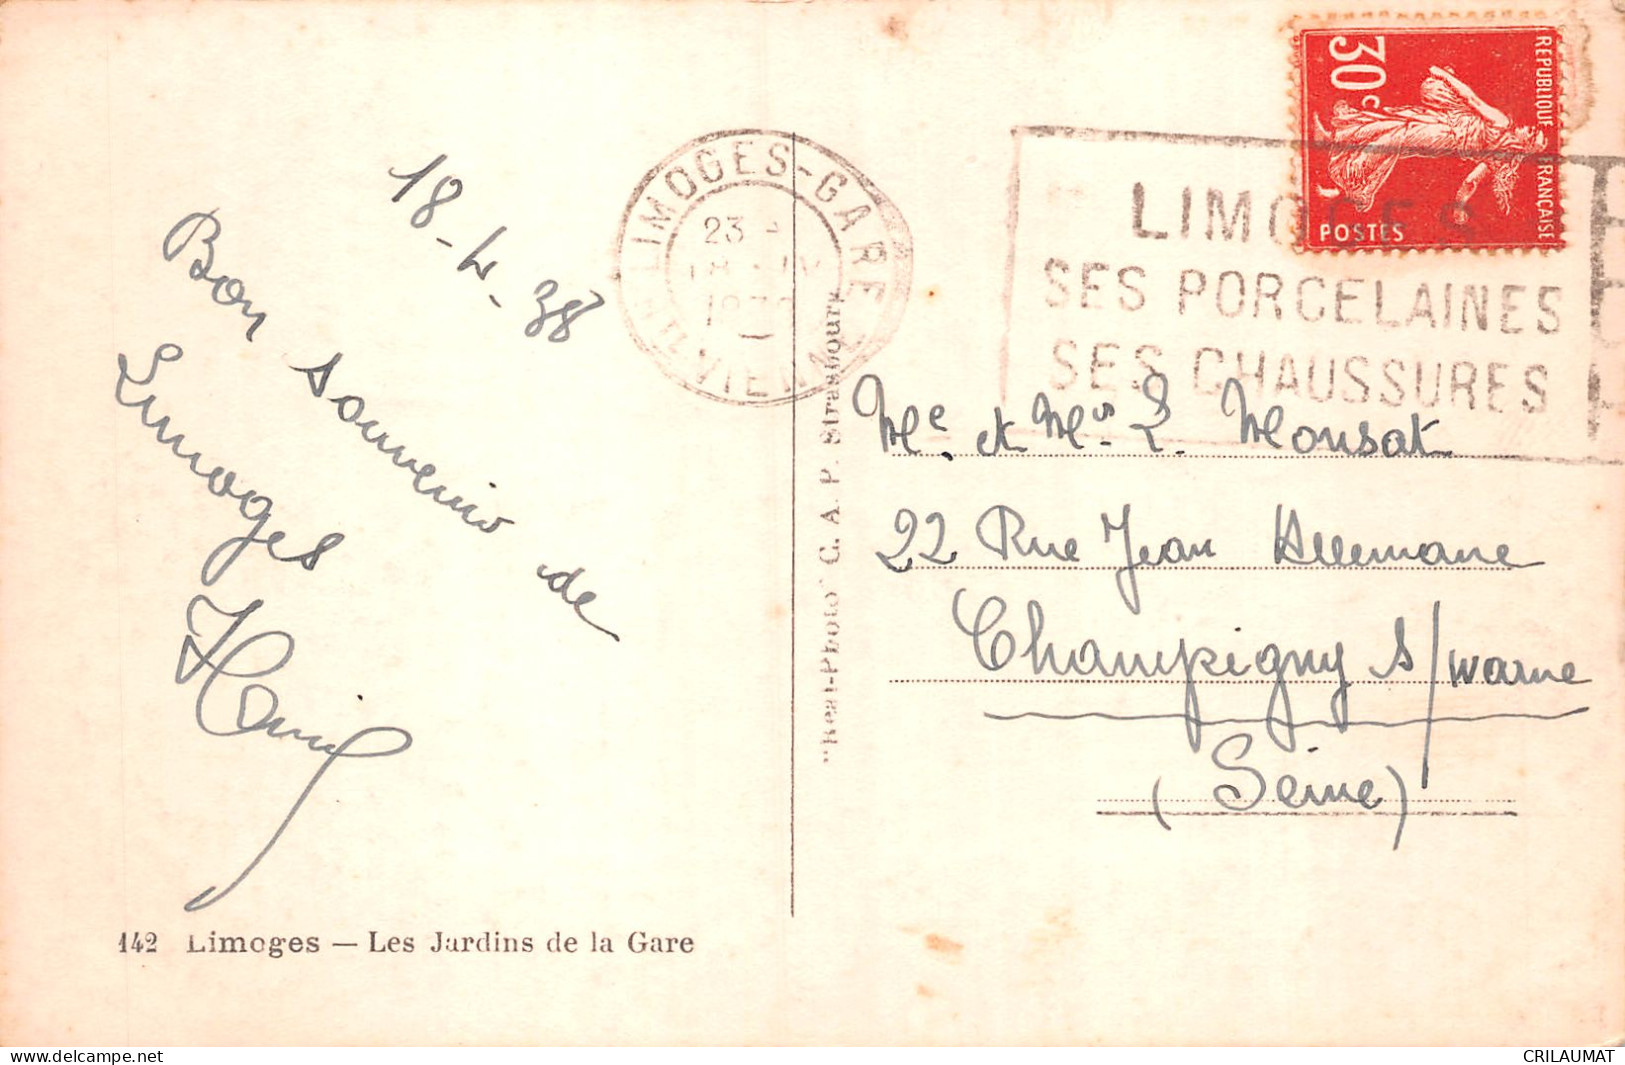 18-4-38
Bon souvenir de
Limoges
142 Limoges — Les Jardins de la Gare
LIMOGES-GARE
23
18 IV
HTE VIENNE
"Real-Photo" C. A. P. Strasbourg
30c
REPUBLIQUE FRANÇAISE
POSTES
LIMOGES
SES PORCELAINES
SES CHAUSSURES
Me. et Mr. L. Monsat
22 Rue Jean Allemane
Champigny s/ marne
(Seine)
delcampe.net
CRILAUMAT